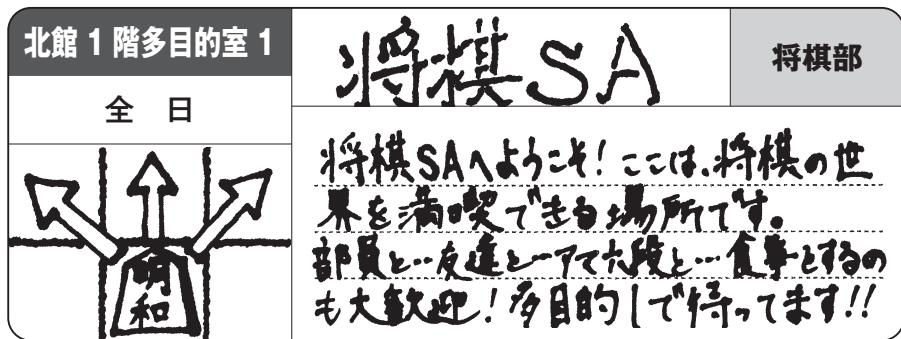 北館1階多目的室1
全日
将棋SA
将棋部
将棋SAへようこそ！ここは、将棋の世
界を満喫できる場所です。
部員と…友達と…アて六段と…食事とするの
も大歓迎！多目的1で待ってます!!
明和